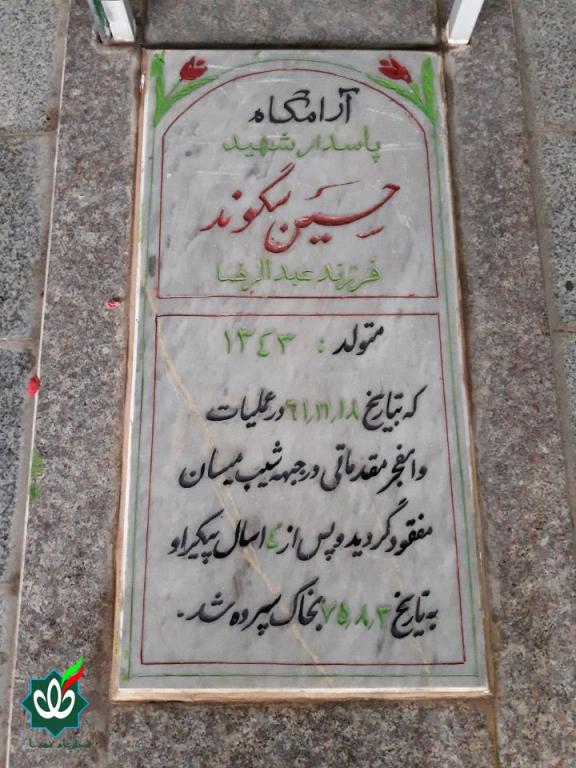 آرامگاه
پاسدار شهید
حسین سگوند
فرزند عبدالرضا
متولد : ۱۳٤۳
که بتاریخ ۶۱٫۱۱٫۱۸ در عملیات
والفجر مقدماتی در جبهه شیب میسان
مفقود گردید و پس از ۱٤ سال پیکر او
به تاریخ ۷۵٫۸٫۳ بخاک سپرده شد.